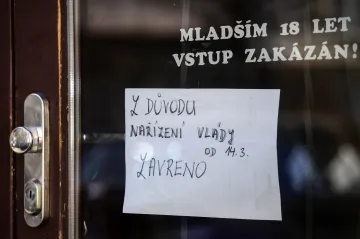 MLADŠÍM 18 LET
VSTUP ZAKÁZÁN!
Z DŮVODU
NAŘÍZENÍ VLÁDY
OD 14.3.
ZAVŘENO